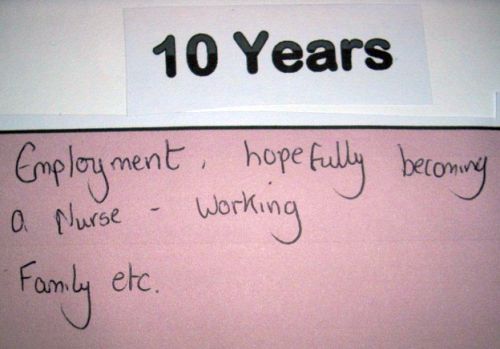 10 Years
Employment, hopefully becoming
a Nurse - Working
Family etc.